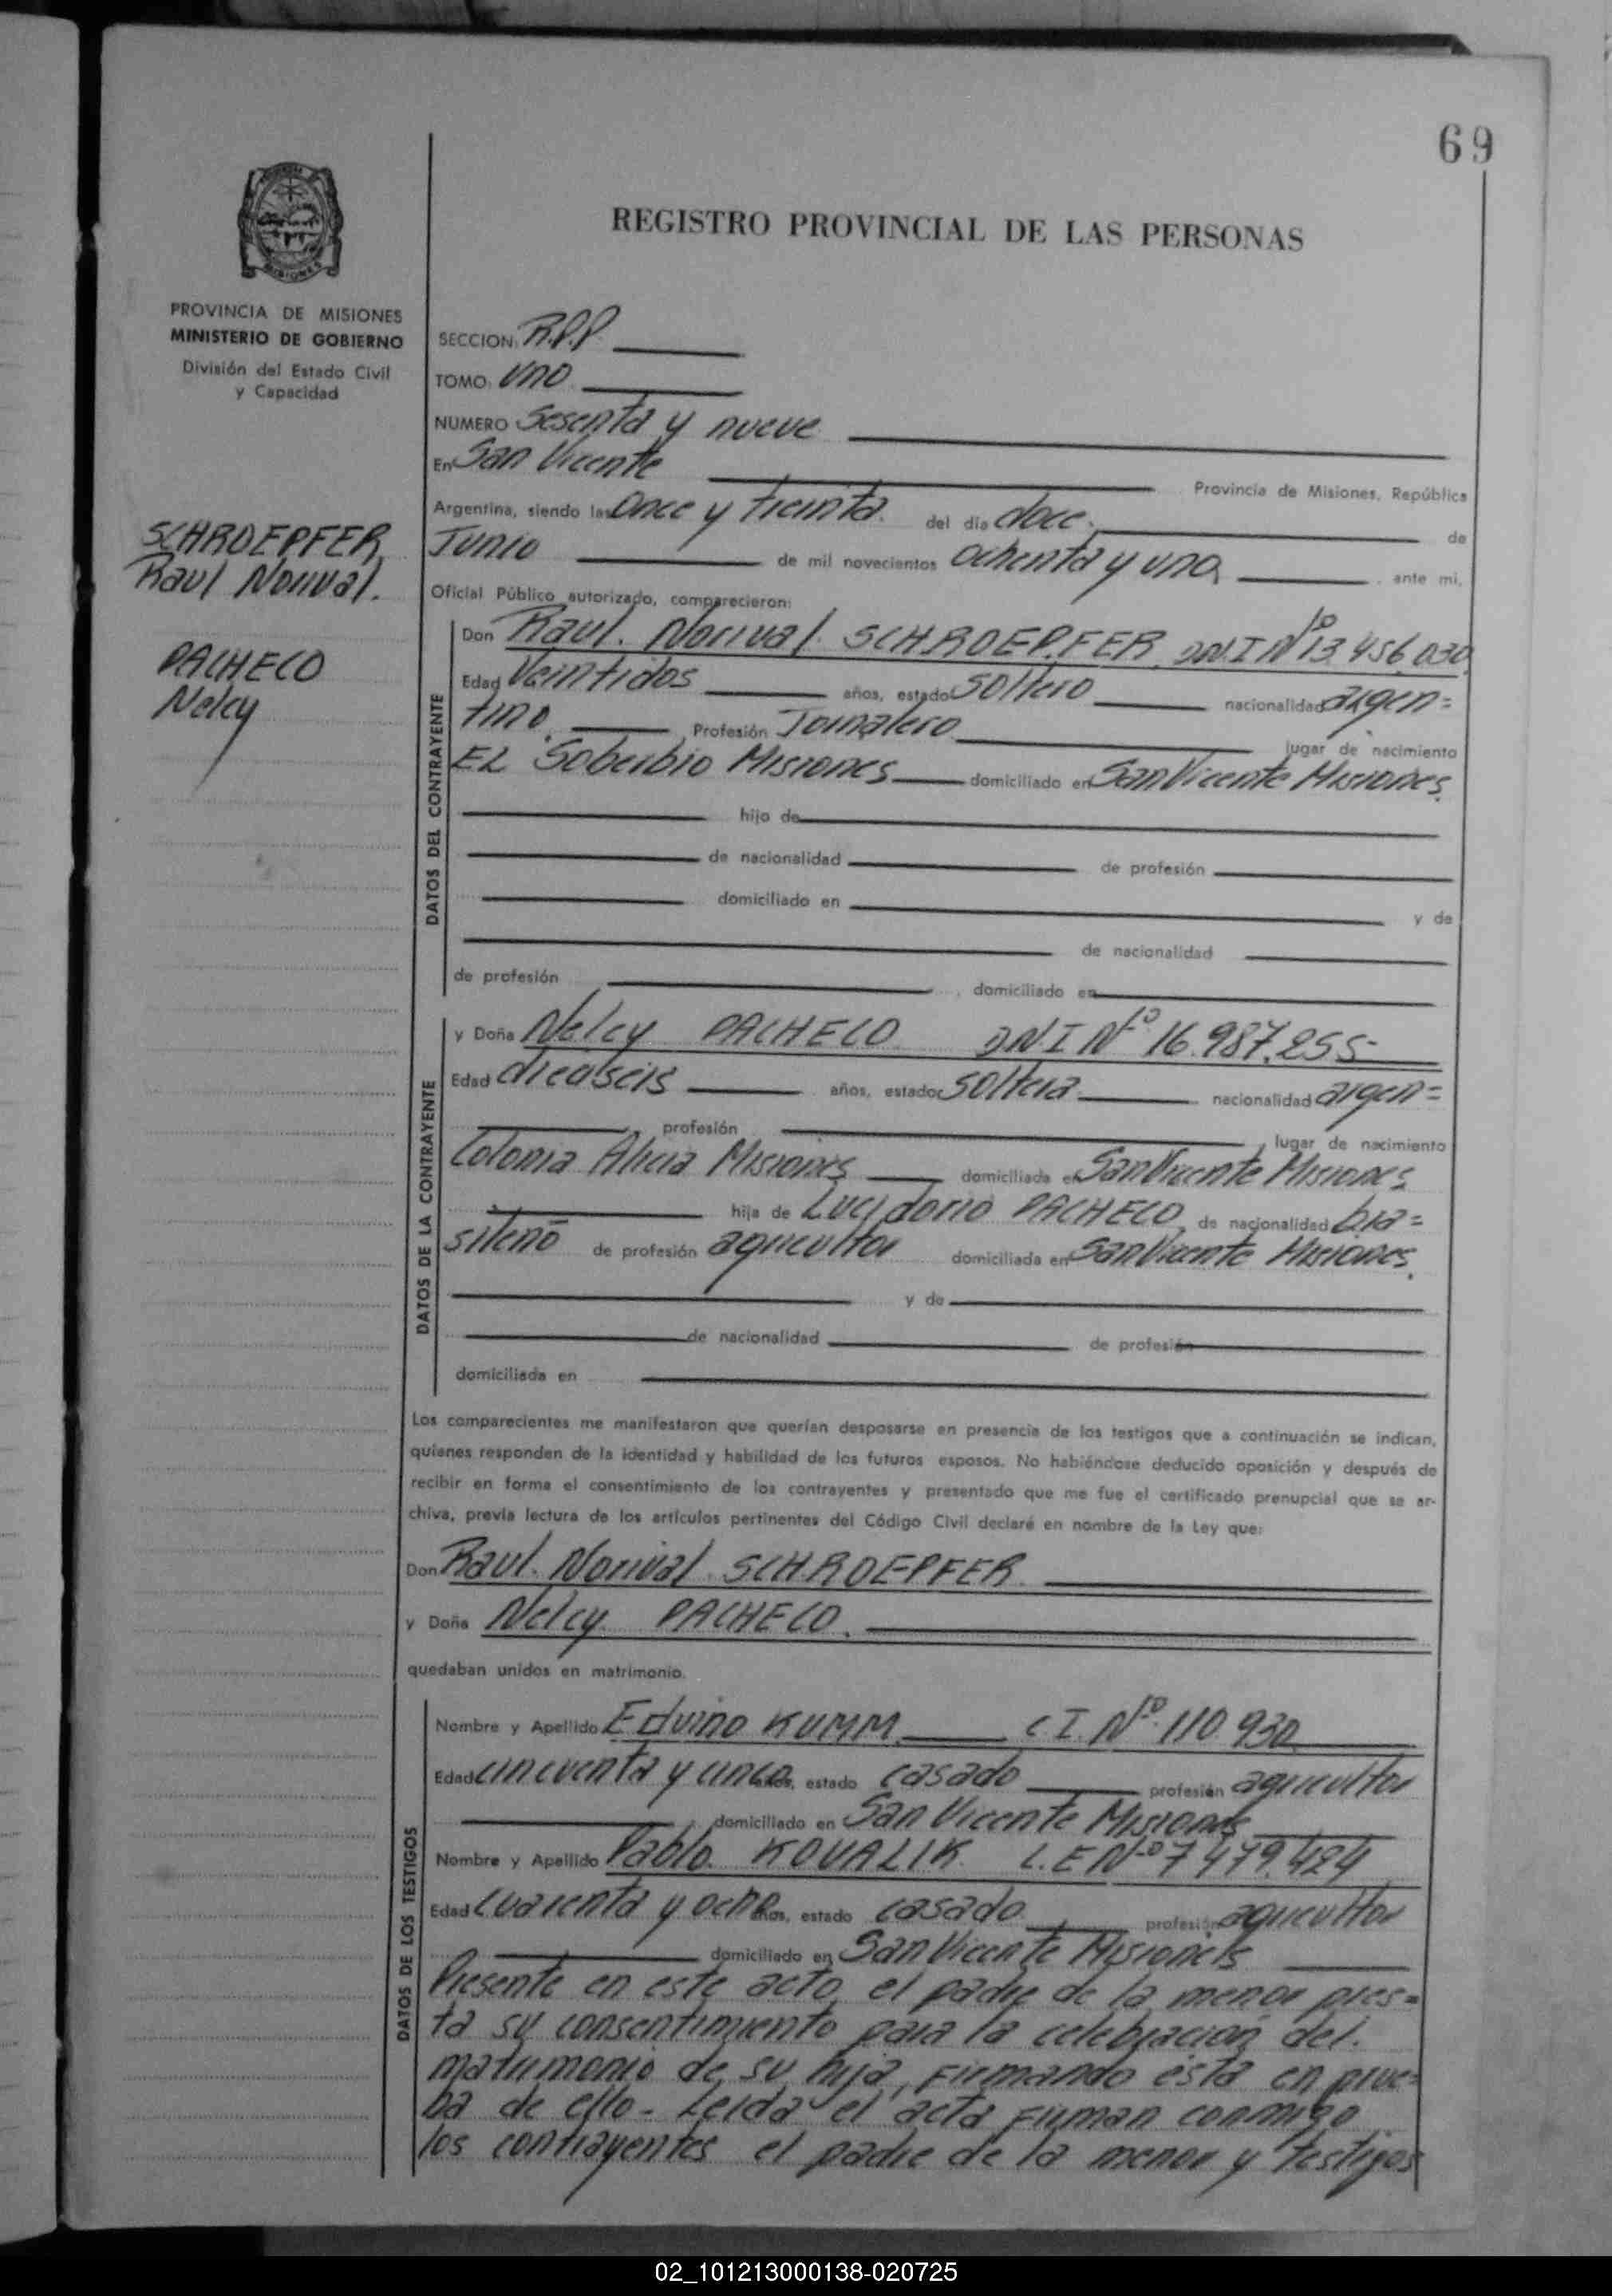 69
REGISTRO PROVINCIAL DE LAS PERSONAS
MISIONES
PROVINCIA DE MISIONES
MINISTERIO DE GOBIERNO
División del Estado Civil
y Capacidad
SCHROEPFER,
Raul Norival.
PACHECO
Nelcy
SECCION: R.P.P.
TOMO: uno
NUMERO Sesenta y nueve
En San Vicente Provincia de Misiones, República
Argentina, siendo las Once y treinta. del día doce. de
Junio de mil novecientos ochenta y uno, ante mi,
Oficial Público autorizado, comparecieron:
DATOS DEL CONTRAYENTE
Don Raul. Norival. SCHROEPFER DNI Nº 13.456.030
Edad Veintidos años, estado soltero nacionalidad argen=
tino. Profesión Jornalero lugar de nacimiento
EL Soberbio Misiones domiciliado en San Vicente Misiones.
hijo de
de nacionalidad de profesión
domiciliado en y de
de nacionalidad
de profesión , domiciliado en
DATOS DE LA CONTRAYENTE
y Doña Nelcy PACHECO DNI Nº 16.987.255
Edad dieciseis años, estado soltera nacionalidad argen=
profesión , lugar de nacimiento
Colonia Alicia Misiones domiciliada en San Vicente Misiones
hija de Lucidorio PACHECO, de nacionalidad bra=
sileño de profesión agricultor domiciliada en San Vicente Misiones.
y de
de nacionalidad de profesión
domiciliada en
Los comparecientes me manifestaron que querían desposarse en presencia de los testigos que a continuación se indican,
quienes responden de la identidad y habilidad de los futuros esposos. No habiéndose deducido oposición y después de
recibir en forma el consentimiento de los contrayentes y presentado que me fue el certificado prenupcial que se ar-
chiva, previa lectura de los artículos pertinentes del Código Civil declaré en nombre de la Ley que:
Don Raul. Norival SCHROEPFER
y Doña Nelcy PACHECO.
quedaban unidos en matrimonio.
DATOS DE LOS TESTIGOS
Nombre y Apellido Edvino KUMM C.I. Nº 110.930
Edad cincuenta y cinco años, estado casado profesión agricultor
domiciliado en San Vicente Misiones
Nombre y Apellido Pablo KOVALIK L.E Nº 7.479.424
Edad cuarenta y ocho años, estado casado profesión agricultor
domiciliado en San Vicente Misiones
Presente en este acto, el padre de la menor pres=
ta su consentimiento para la celebracion del.
matrimonio de su hija, Firmando esta en prue=
ba de ello- Leida el acta Firman conmigo
los contrayentes el padre de la menor y testigos
02_101213000138-020725